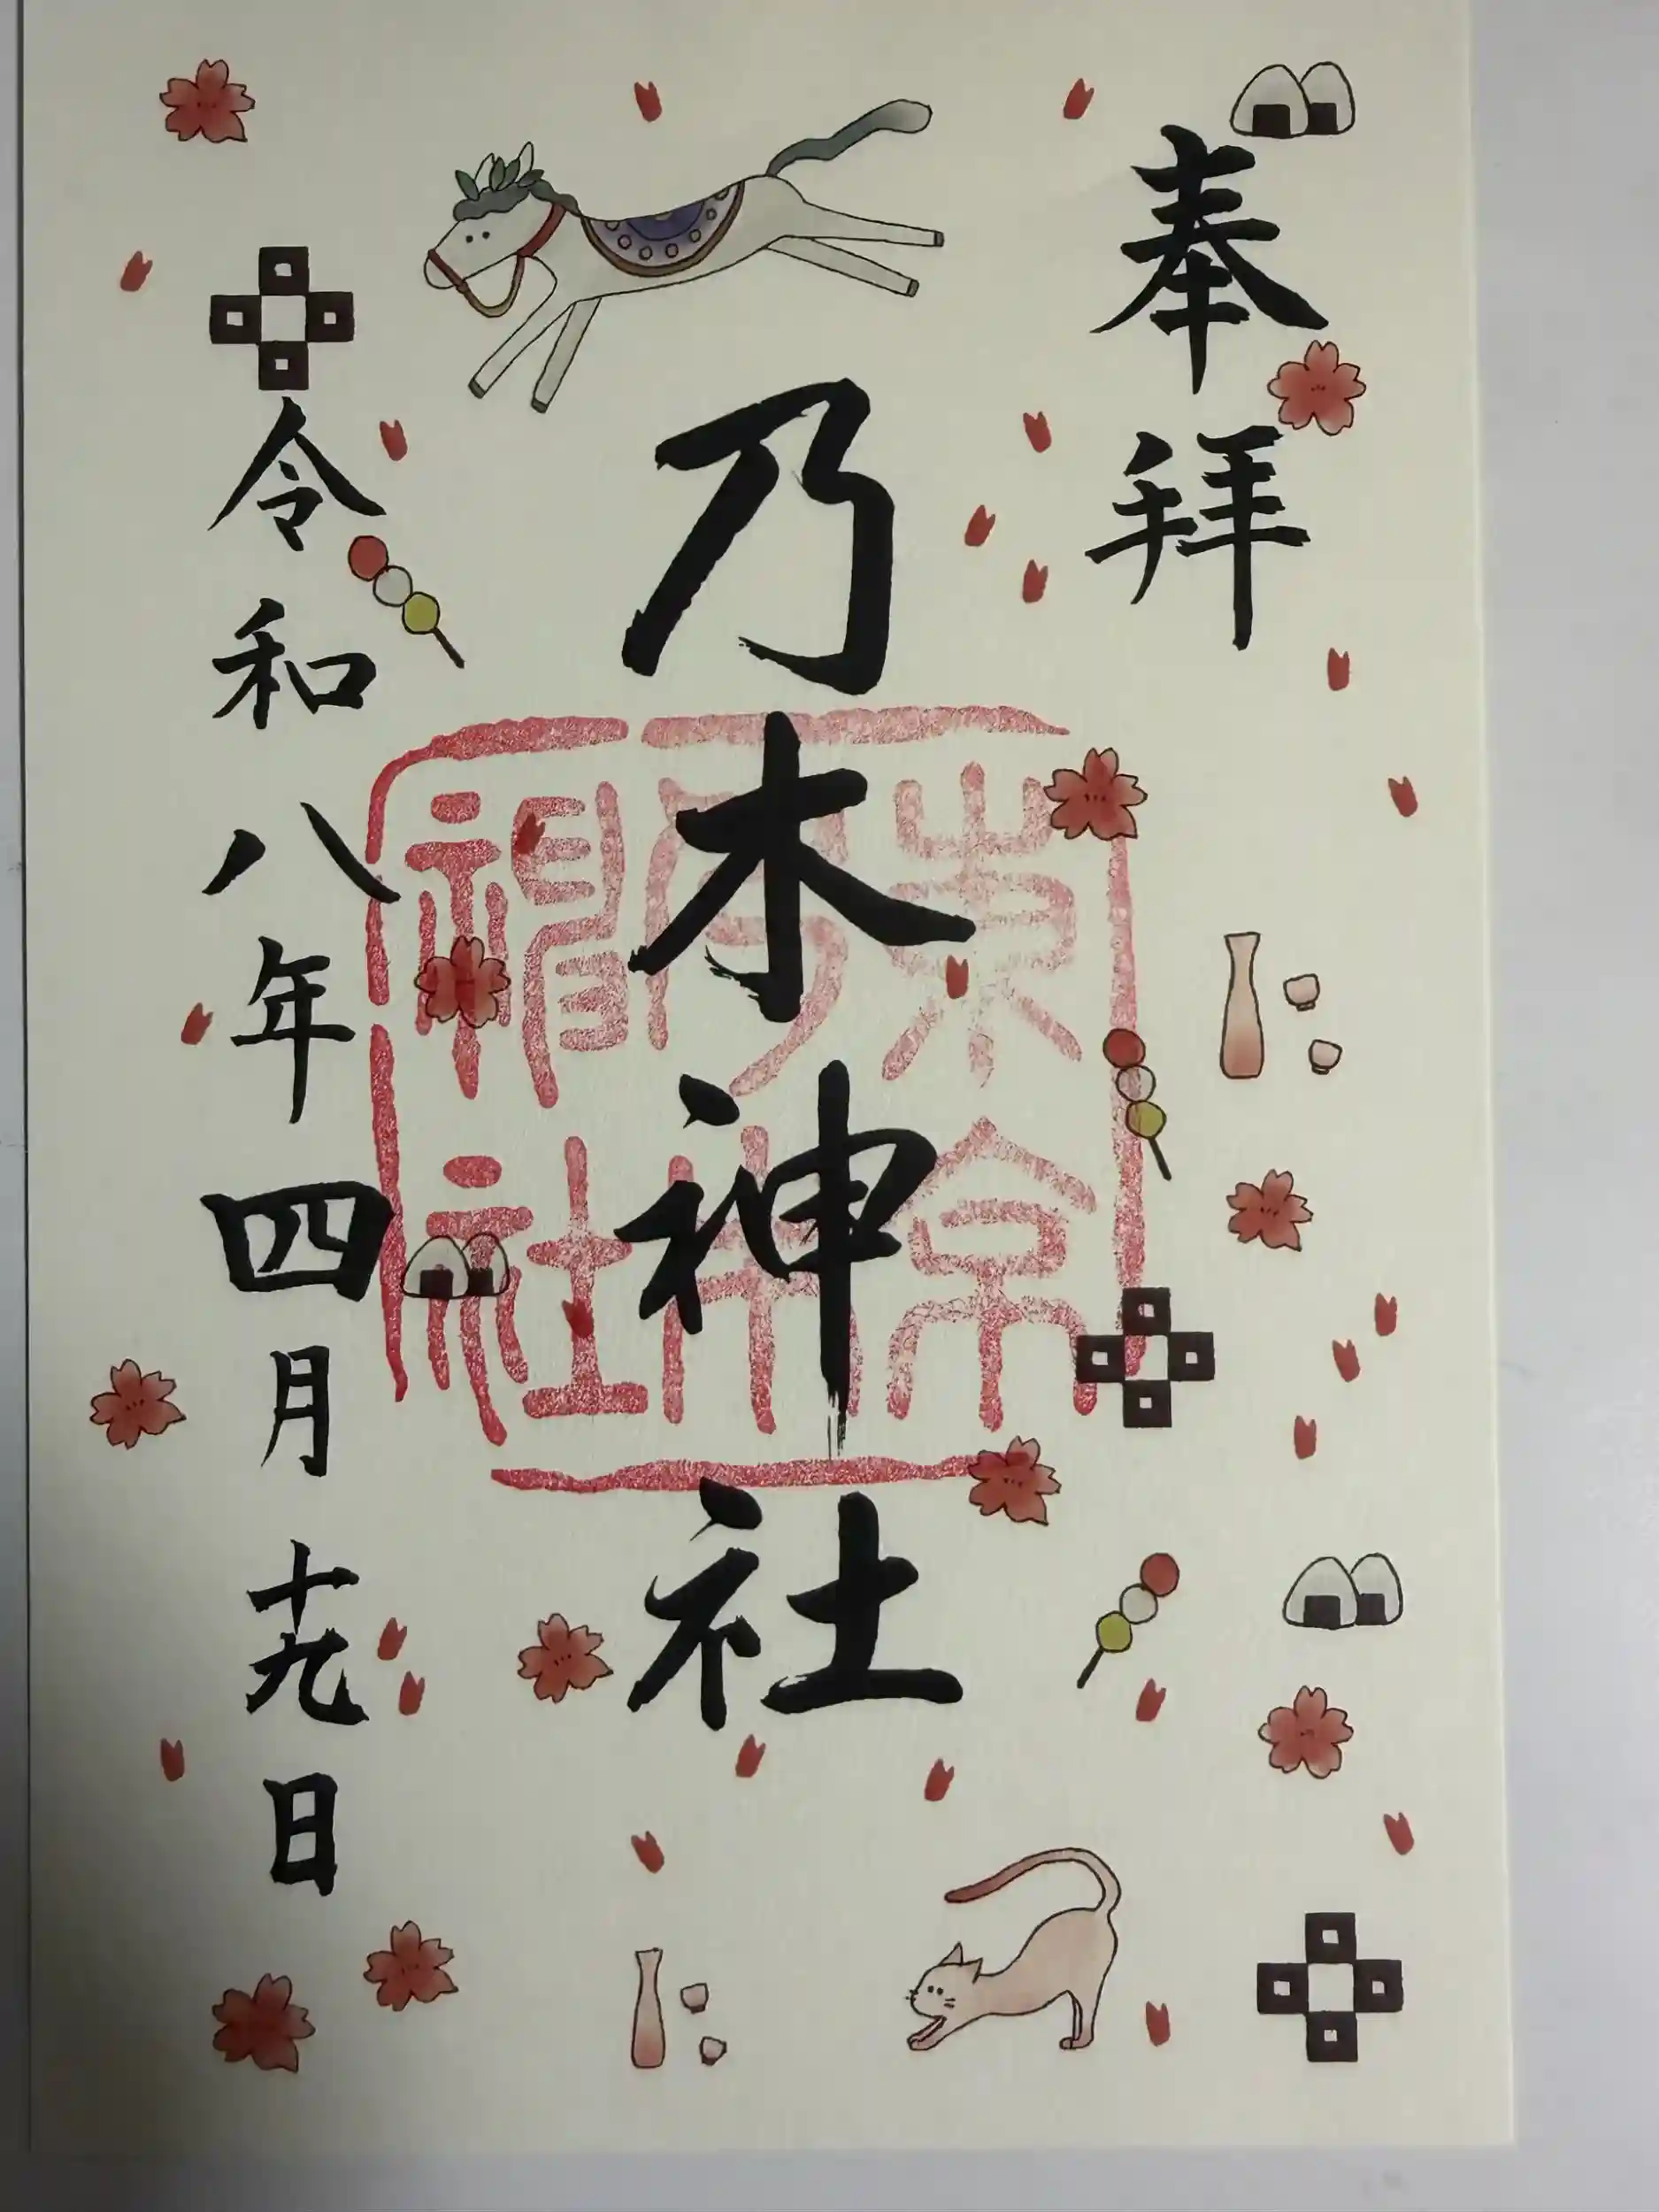 奉拝
乃木神社
令和八年四月十九日
東京
乃木
神社